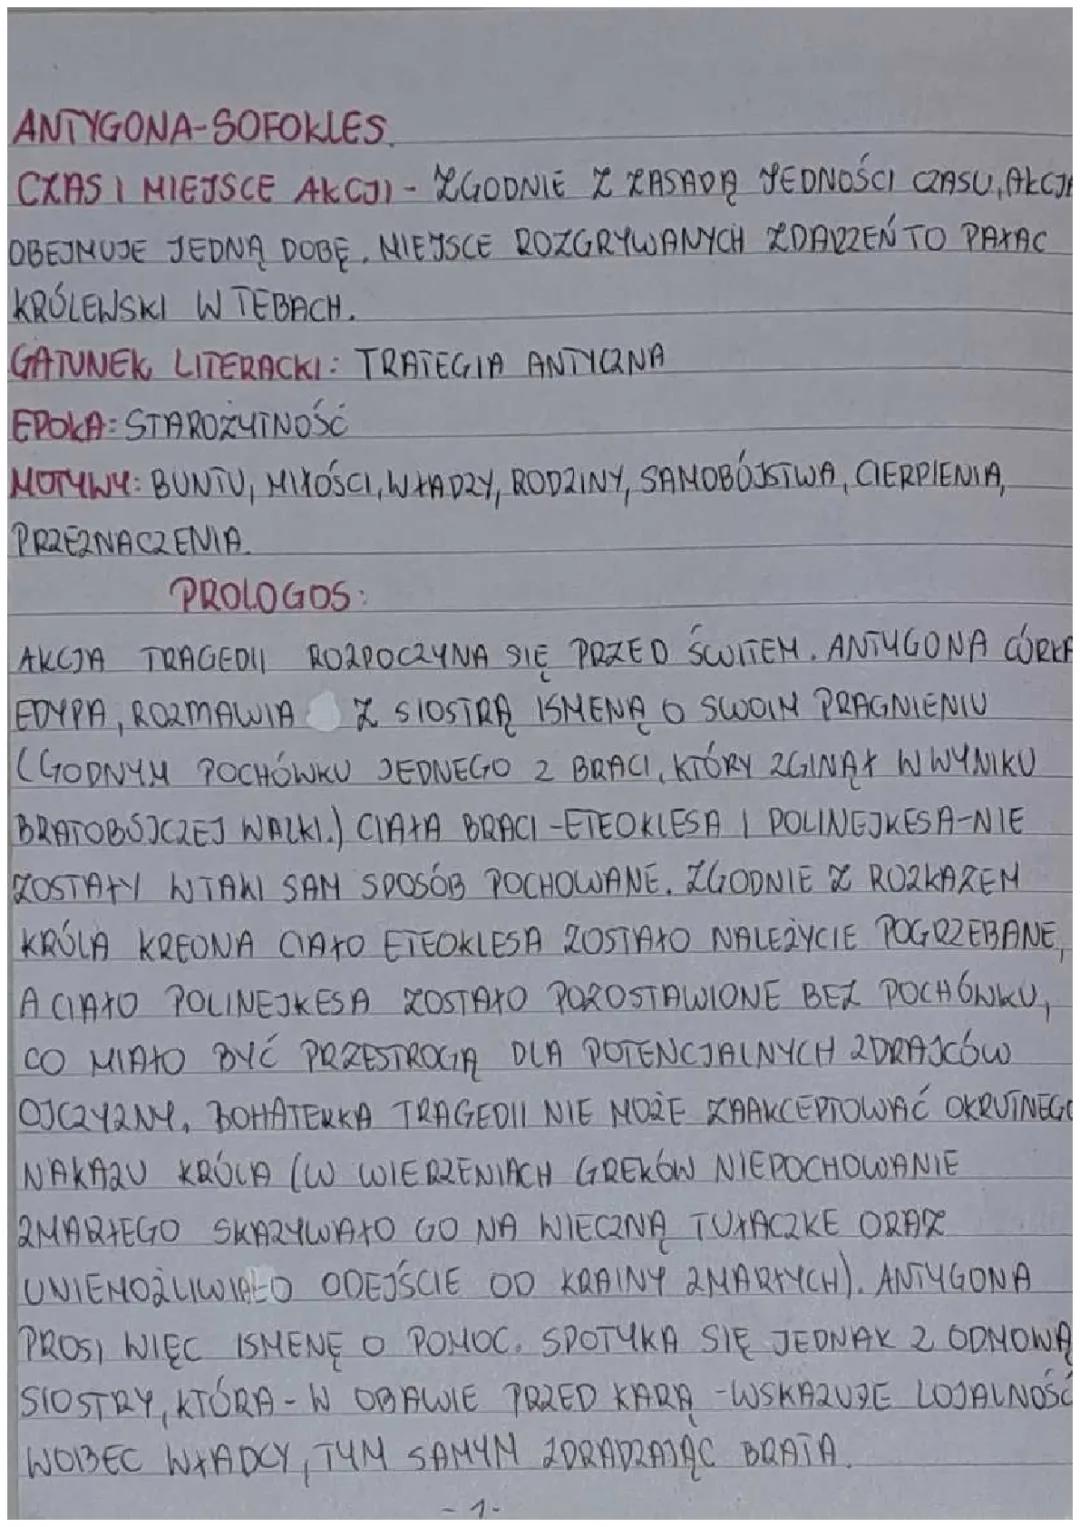 ANTYGONA-SOFOKLES.
CZAS I MIEJSCE AKCJI - ZGODNIE Z ZASADĄ JEDNOŚCI CZASU, AKCJA
OBEJMUJE JEDNĄ DOBĘ. MIEJSCE ROZGRYWANYCH ZDARZEŃ TO PAŁAC
KRÓLEWSKI W TEBACH.
GATUNEK LITERACKI: TRATEGIA ANTYCZNA
EPOKA: STAROŻYTNOŚĆ
MOTYWY: BUNTU, MIŁOŚCI, WŁADZY, RODZINY, SAMOBÓJSTWA, CIERPIENIA,
PRZEZNACZENIA.
PROLOGOS:
AKCJA TRAGEDII ROZPOCZYNA SIĘ PRZED ŚWITEM. ANTYGONA CÓRKA
EDYPA, ROZMAWIA Z SIOSTRĄ ISMENĄ O SWOIM PRAGNIENIU
(GODNYM POCHÓWKU JEDNEGO Z BRACI, KTÓRY ZGINĄŁ W WYNIKU
BRATOBÓJCZEJ WALKI.) CIAŁA BRACI - ETEOKLESA I POLINEJKESA - NIE
ZOSTAŁY W TAKI SAM SPOSÓB POCHOWANE. ZGODNIE Z ROZKAZEM
KRÓLA KREONA CIAŁO ETEOKLESA ZOSTAŁO NALEŻYCIE POGRZEBANE,
A CIAŁO POLINEJKESA ZOSTAŁO POZOSTAWIONE BEZ POCHÓWKU,
CO MIAŁO BYĆ PRZESTROGĄ DLA POTENCJALNYCH ZDRAJCÓW
OJCZYZNY. BOHATERKA TRAGEDII NIE MOŻE ZAAKCEPTOWAĆ OKRUTNEGO
NAKAZU KRÓLA (W WIERZENIACH GREKÓW NIEPOCHOWANIE
ZMARŁEGO SKAZYWAŁO GO NA WIECZNĄ TUŁACZKE ORAZ
UNIEMOŻLIWIAŁO ODEJŚCIE OD KRAINY ZMARŁYCH). ANTYGONA
PROSI WIĘC ISMENĘ O POMOC. SPOTYKA SIĘ JEDNAK Z ODMOWĄ
SIOSTRY, KTÓRA - W OBAWIE PRZED KARĄ - WSKAZUJE LOJALNOŚĆ
WOBEC WŁADCY, TYM SAMYM ZDRADZAJĄC BRATA.
- 1 -